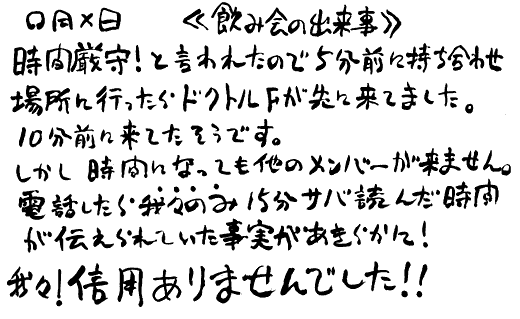 〇月×日 《飲み会の出来事》
時間厳守！と言われたので5分前に待ち合わせ
場所に行ったらドクトルFが先に来てました。
10分前に来てたそうです。
しかし時間になっても他のメンバーが来ません。
電話したら我々のみ15分サバ読んだ時間
が伝えられていた事実があきらかに！
我々！信用ありませんでした！！